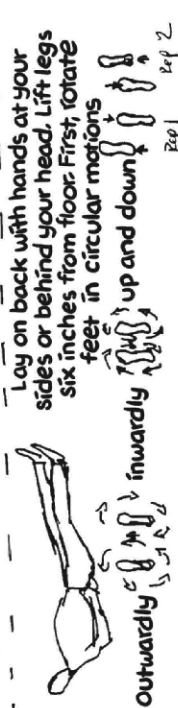 Lay on back with hands at your
sides or behind your head. Lift legs
six inches from floor. First, rotate
feet in circular motions
outwardly inwardly up and down
Rep 1 Rep 2